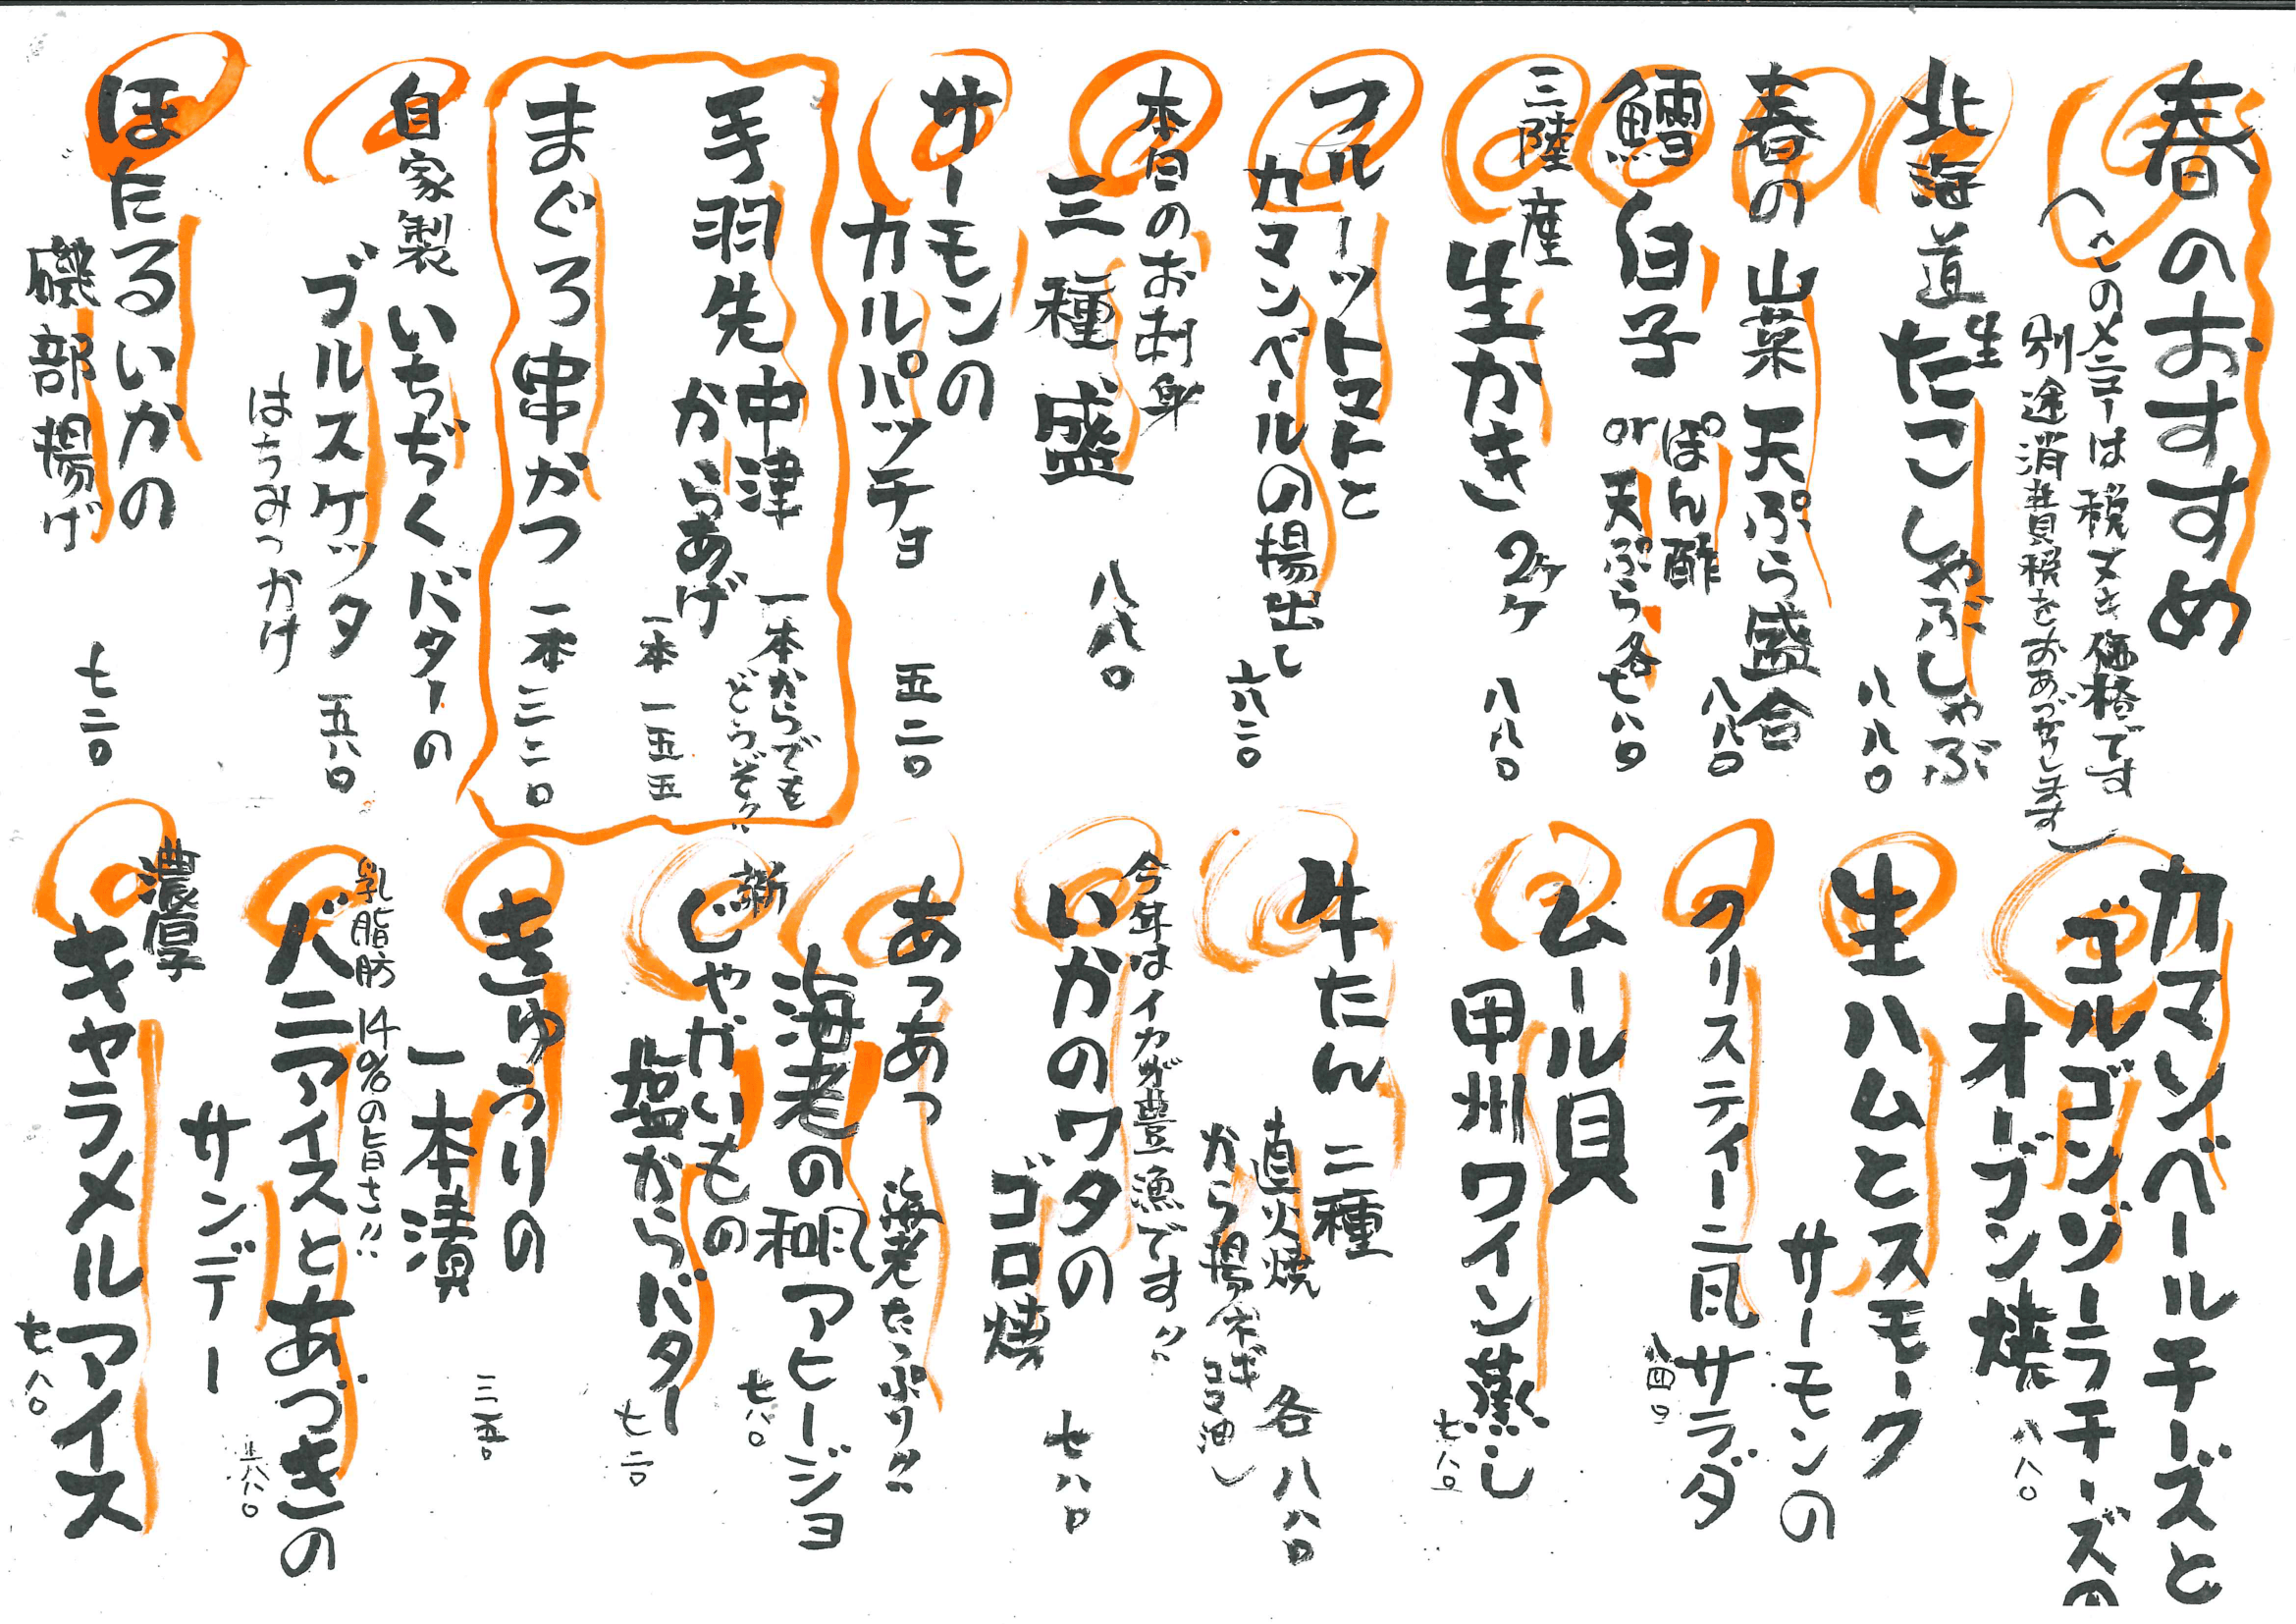 春のおすすめ
(このメニューは税ヌキ価格です
別途消費税をおあづかりします)
北海道
生たこしゃぶしゃぶ
八八〇
春の山菜天ぷら盛合
八八〇
鱈白子
ぽん酢
or天ぷら各七八〇
三陸産
生かき2ケ
八八〇
フルーツトマトと
カマンベールの揚出し
六八二〇
本日のお刺身
三種盛
八八〇
サーモンの
カルパッチョ
五二〇
手羽先中津
からあげ
一本からでも
どうぞ!!
一本一五五
まぐろ串かつ一本三二〇
自家製
いちぢくバターの
ブルスケッタ
五八〇
はちみつかけ
ほたるいかの
磯部揚げ
七二〇
カマンベールチーズと
ゴルゴンゾーラチーズの
オーブン焼
八八〇
生ハムとスモーク
サーモンの
クリスティーニ風サラダ
八四〇
ムール貝
甲州ワイン蒸し
七八〇
牛たん二種
直火焼
から揚(ネギゴマ油)
各八八〇
今年はイカが豊漁です!!
いかのワタの
ゴロ焼
七八〇
あつあつ
海老たっぷり!!
海老の和風アヒージョ
七八〇
新
じゃがいもの
塩からバター
七二〇
きゅうりの
一本漬
三五〇
乳脂肪14%の旨さ!!
バニラアイスとあづきの
サンデー
六八〇
濃厚
キャラメルアイス
七八〇